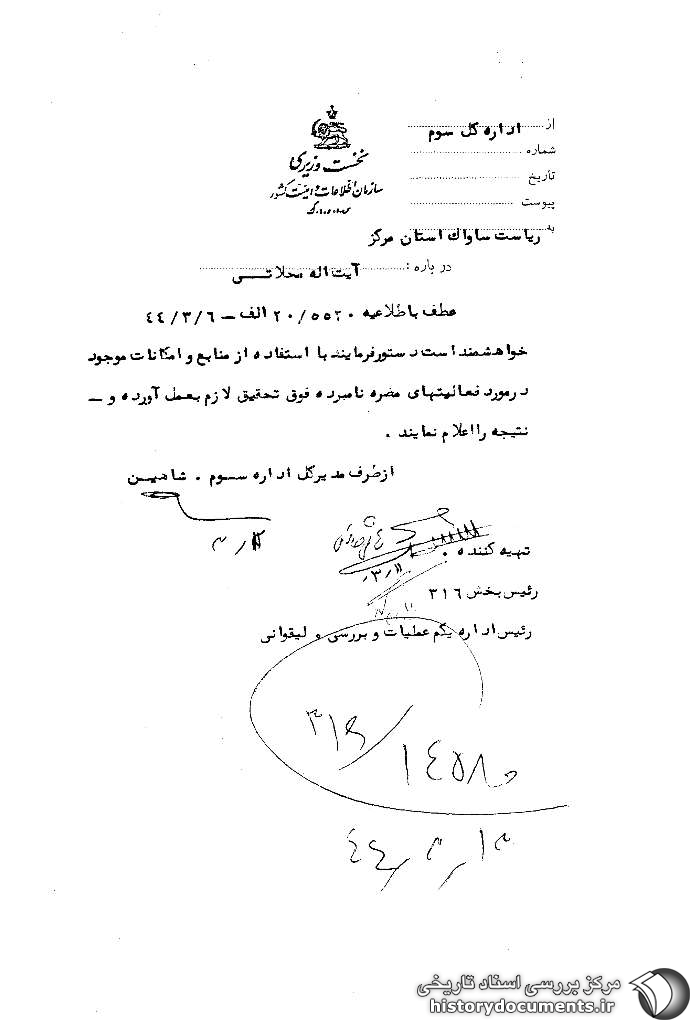 از اداره کل سوم
شماره
تاریخ
پیوست
نخست وزیری
سازمان اطلاعات و امنیت کشور
س.ا.و.ا.ک
به ریاست ساواک استان مرکز
در باره : آیت اله محلاتی
عطف باطلاعیه ۲۰/۵۵۲۰ الف - ۴۴/۳/۶
خواهشمند است دستور فرمایند با استفاده از منابع و امکانات موجود
در مورد فعالیتهای مضره نامبرده فوق تحقیق لازم بعمل آورده و -
نتیجه را اعلام نمایند .
از طرف مدیر کل اداره سوم . شاهین
تهیه کننده .
۳/۱۱
رئیس بخش ۳۱۶
رئیس اداره یکم عملیات و بررسی . لیقوانی
۳۱۶/
۴۴/۳/۱۳
مرکز بررسی اسناد تاریخی
historydocuments.ir